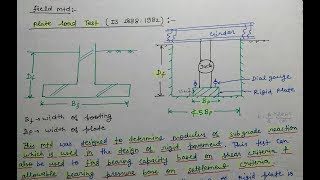 field mtd:-
Plate load Test (IS 1888:1982):-
Girder
Df
Df
Jack
Dial gauge
Rigid Plate
Bf
Bp
4.5Bp
Bf → width of footing
Bp → width of plate
This mtd was designed to determine modulus of subgrade reaction
which is used in the design of rigid pavement. This test can
also be used to find bearing capacity based on shear criteria &
allowable bearing pressure base on settlement criteria.